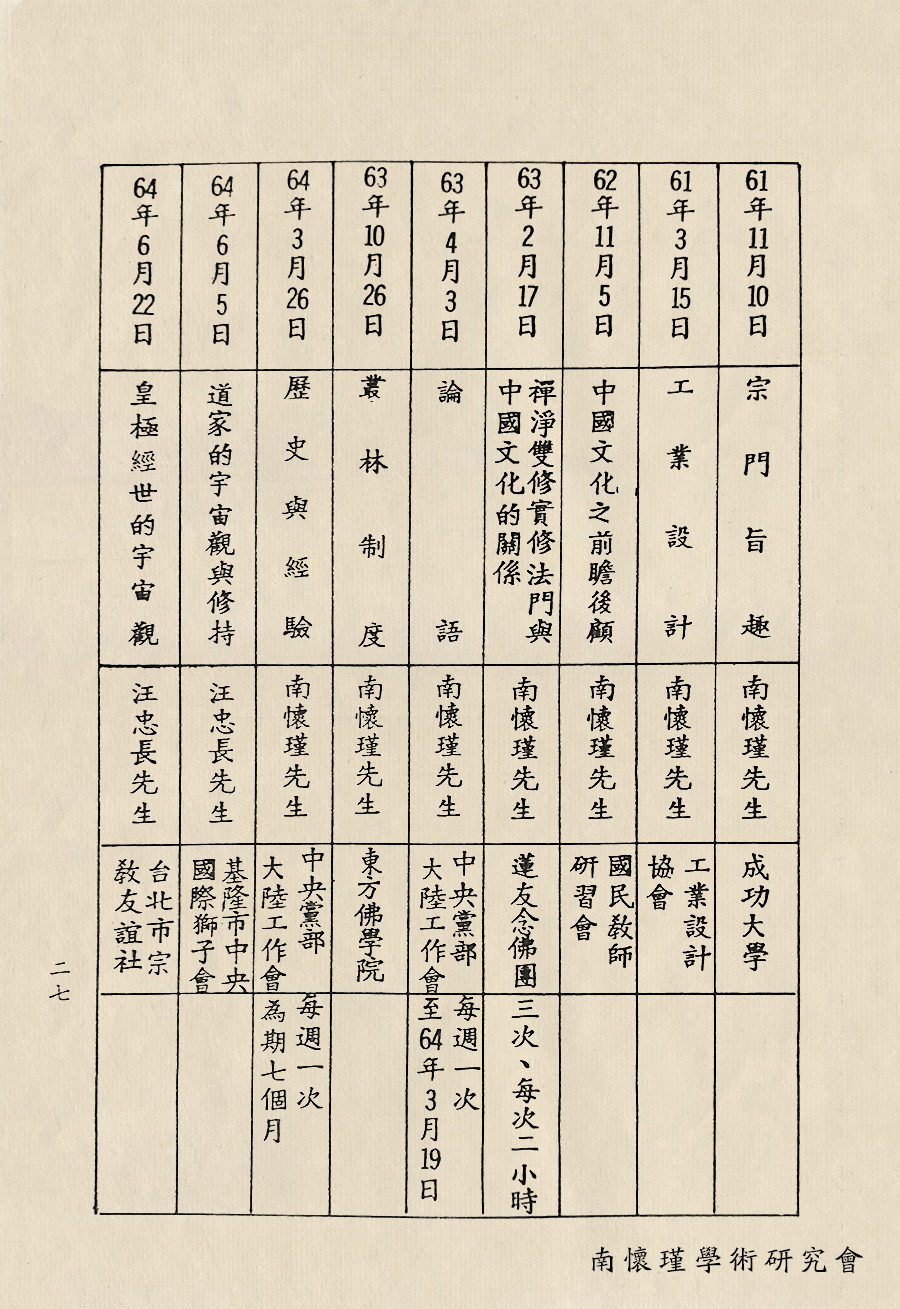 61年11月10日
宗門旨趣
南懷瑾先生
成功大學
61年3月15日
工業設計
南懷瑾先生
工業設計
協會
62年11月5日
中國文化之前瞻後顧
南懷瑾先生
國民教師
研習會
63年2月17日
禪淨雙修實修法門與
中國文化的關係
南懷瑾先生
蓮友念佛團
三次、每次二小時
63年4月3日
論語
南懷瑾先生
中央黨部
大陸工作會
每週一次
至64年3月19日
63年10月26日
叢林制度
南懷瑾先生
東方佛學院
64年3月26日
歷史與經驗
南懷瑾先生
中央黨部
大陸工作會
每週一次
為期七個月
64年6月5日
道家的宇宙觀與修持
汪忠長先生
基隆市中央
國際獅子會
64年6月22日
皇極經世的宇宙觀
汪忠長先生
台北市宗
教友誼社
二七
南懷瑾學術研究會